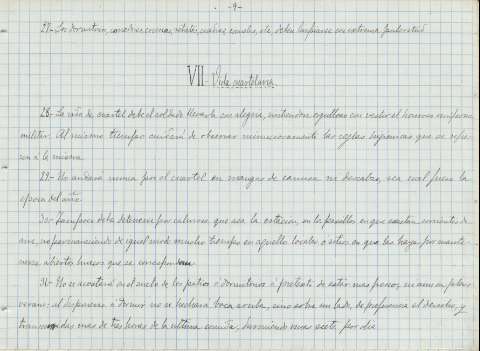 -9-
27.- Los dormitorios, comedores, cocinas, retretes, cuadras, canales, etc, deben limpiarse con extrema pulcritud.
VII.- Vida cuartelaria.
28.- La vida de cuartel debe el soldado llevarla con alegria, sintiendose orgulloso con vestir el honroso uniforme
militar. Al mismo tiempo cuidará de observar minuciosamente las reglas higienicas que se refie-
ren a la misma.
29.- No andará nunca por el cuartel en mangas de camisa ni descalzo, sea cual fuere la
epoca del año.
30.- Tampoco debe detenerse por calurosa que sea la estacion, en los pasillos en que existan corrientes de
aire, no permaneciendo de igual modo mucho tiempo en aquellos locales o sitios en que las haya, por mante-
nerse abiertos huecos que se correspondan
31.- No se acostará en el suelo de los patios o dormitorios á pretexto de estar mas fresco, ni aun en pleno
verano: al disponerse a dormir no se hechará boca arriba, sino sobre un lado, de preferencia el derecho, y
transcurridas mas de tres horas de la ultima comida, durmiendo siete por dia.